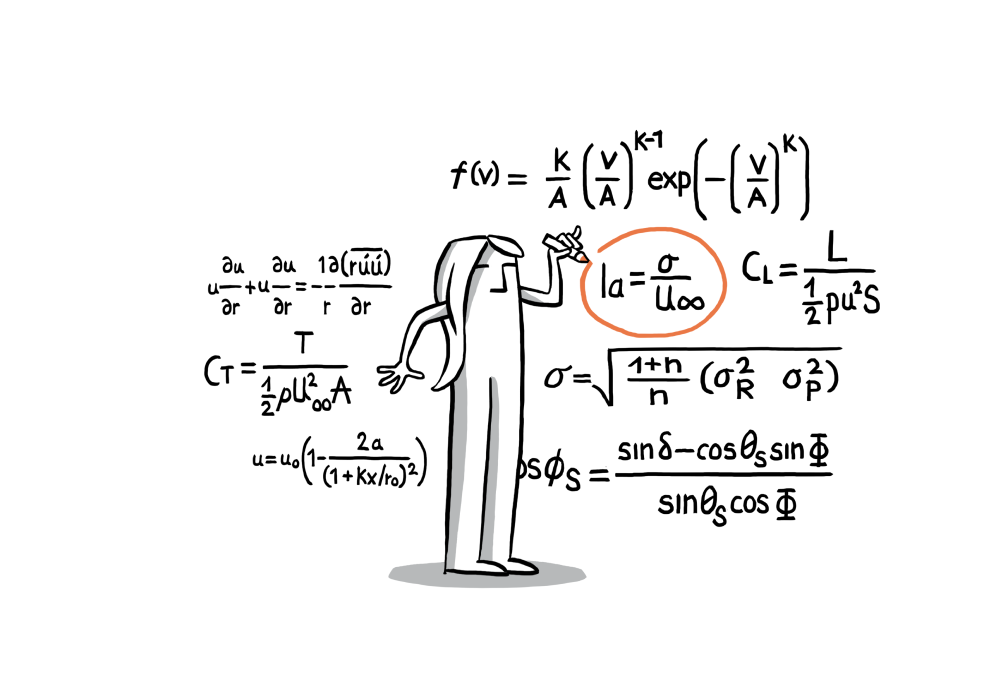 f(v) = K/A (V/A)^(K-1) exp(-(V/A)^K)
u ∂u/∂r + u ∂u/∂r = - 1/r ∂(r\overline{úú})/∂r
Ia = σ/U∞
C_L = L/(1/2 ρu²S)
C_T = T/(1/2 ρU∞² A)
σ = √(1+n/n (σ_R² σ_P²))
u = u₀(1 - 2a/(1+Kx/r₀)²)
osϕ_S = (sinδ - cosθ_S sinΦ)/(sinθ_S cosΦ)